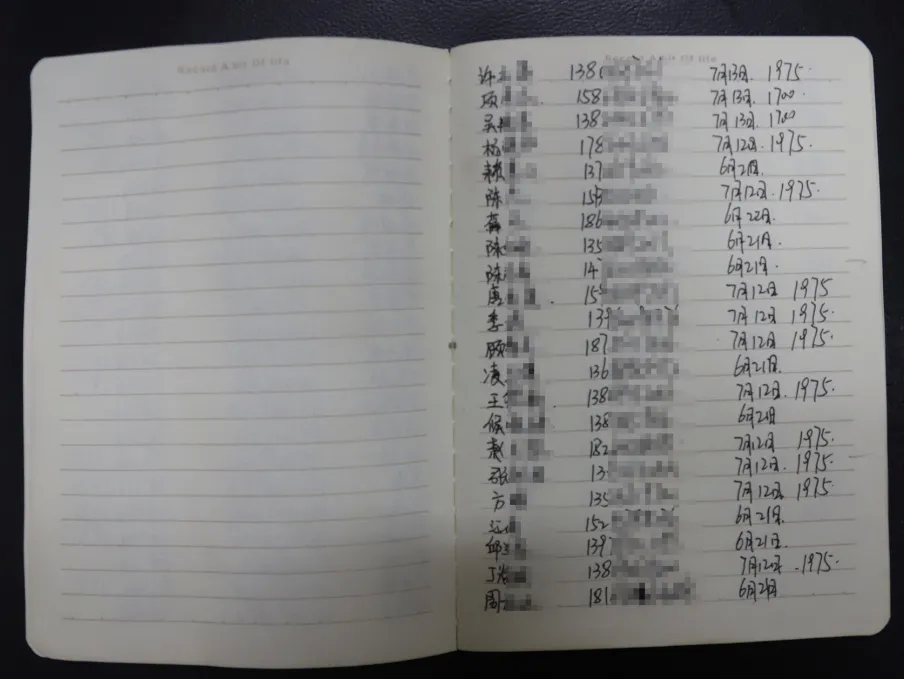 Record A bit Of life
Record A bit Of life
许 138 7月13日. 1975.
项 158 7月13日. 1700.
吴 138 7月13日. 1700
杨 178 7月12日. 1975.
赖 137 6月21日.
陈 159 7月12日. 1975.
186 6月22日.
陈 135 6月21日.
陈 14 6月21日.
唐 15 7月12日 1975
李 139 7月12日 1975.
顾 187 7月12日 1975.
凌 136 6月21日.
王 138 7月12日. 1975.
候 138 6月21日
赵 182 7月12日 1975.
张 13 7月12日. 1975.
方 135 7月12日. 1975
江 152 6月21日.
邱 139 6月21日.
丁 138 7月12日. 1975.
周 181 6月21日